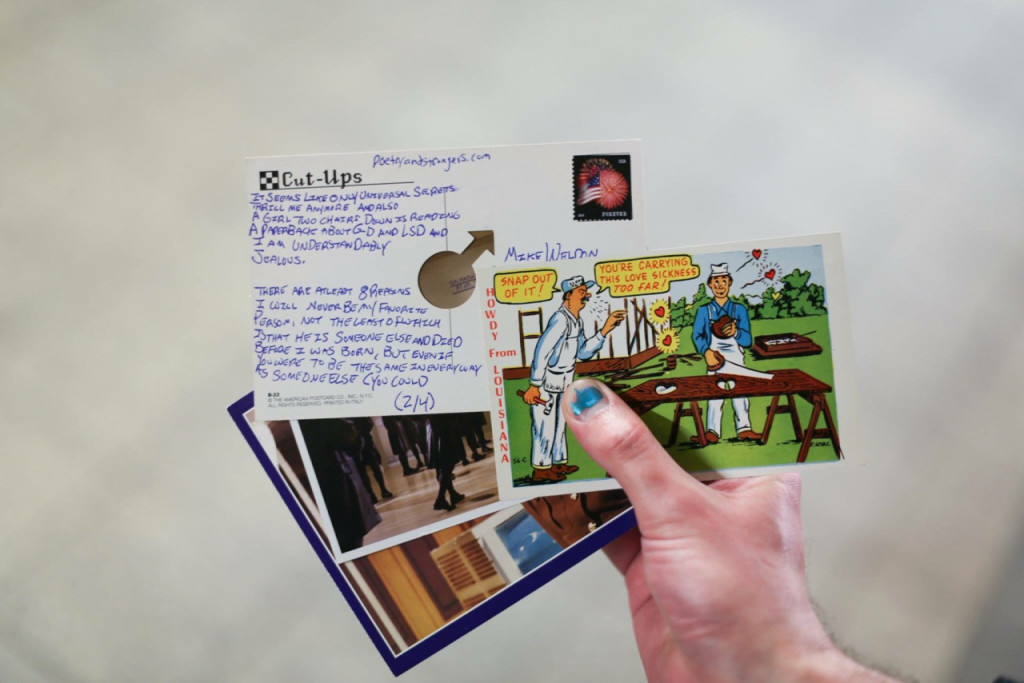 poetryandstrangers.com
Cut-Ups
IT SEEMS LIKE ONLY UNIVERSAL SECRETS
THRILL ME ANYMORE AND ALSO
A GIRL TWO CHAIRS DOWN IS READING
A PAPERBACK ABOUT G-D AND LSD AND
I AM UNDERSTANDABLY
JEALOUS.
THERE ARE ATLEAST 8 REASONS
I WILL NEVER BE MY FAVORITE
PERSON, NOT THE LEAST OF WHICH
IS THAT HE IS SOMEONE ELSE AND DIED
BEFORE I WAS BORN, BUT EVEN IF
YOU WERE TO BE THE SAME IN EVERY WAY
AS SOMEONE ELSE (YOU COULD
(2/4)
B-22
© THE AMERICAN POSTCARD CO., INC., N.Y.C.
ALL RIGHTS RESERVED. PRINTED IN ITALY
USA
FOREVER
MIKE
SNAP OUT
OF IT!
YOU'RE CARRYING
THIS LOVE SICKNESS
TOO FAR!
HOWDY From LOUISIANA